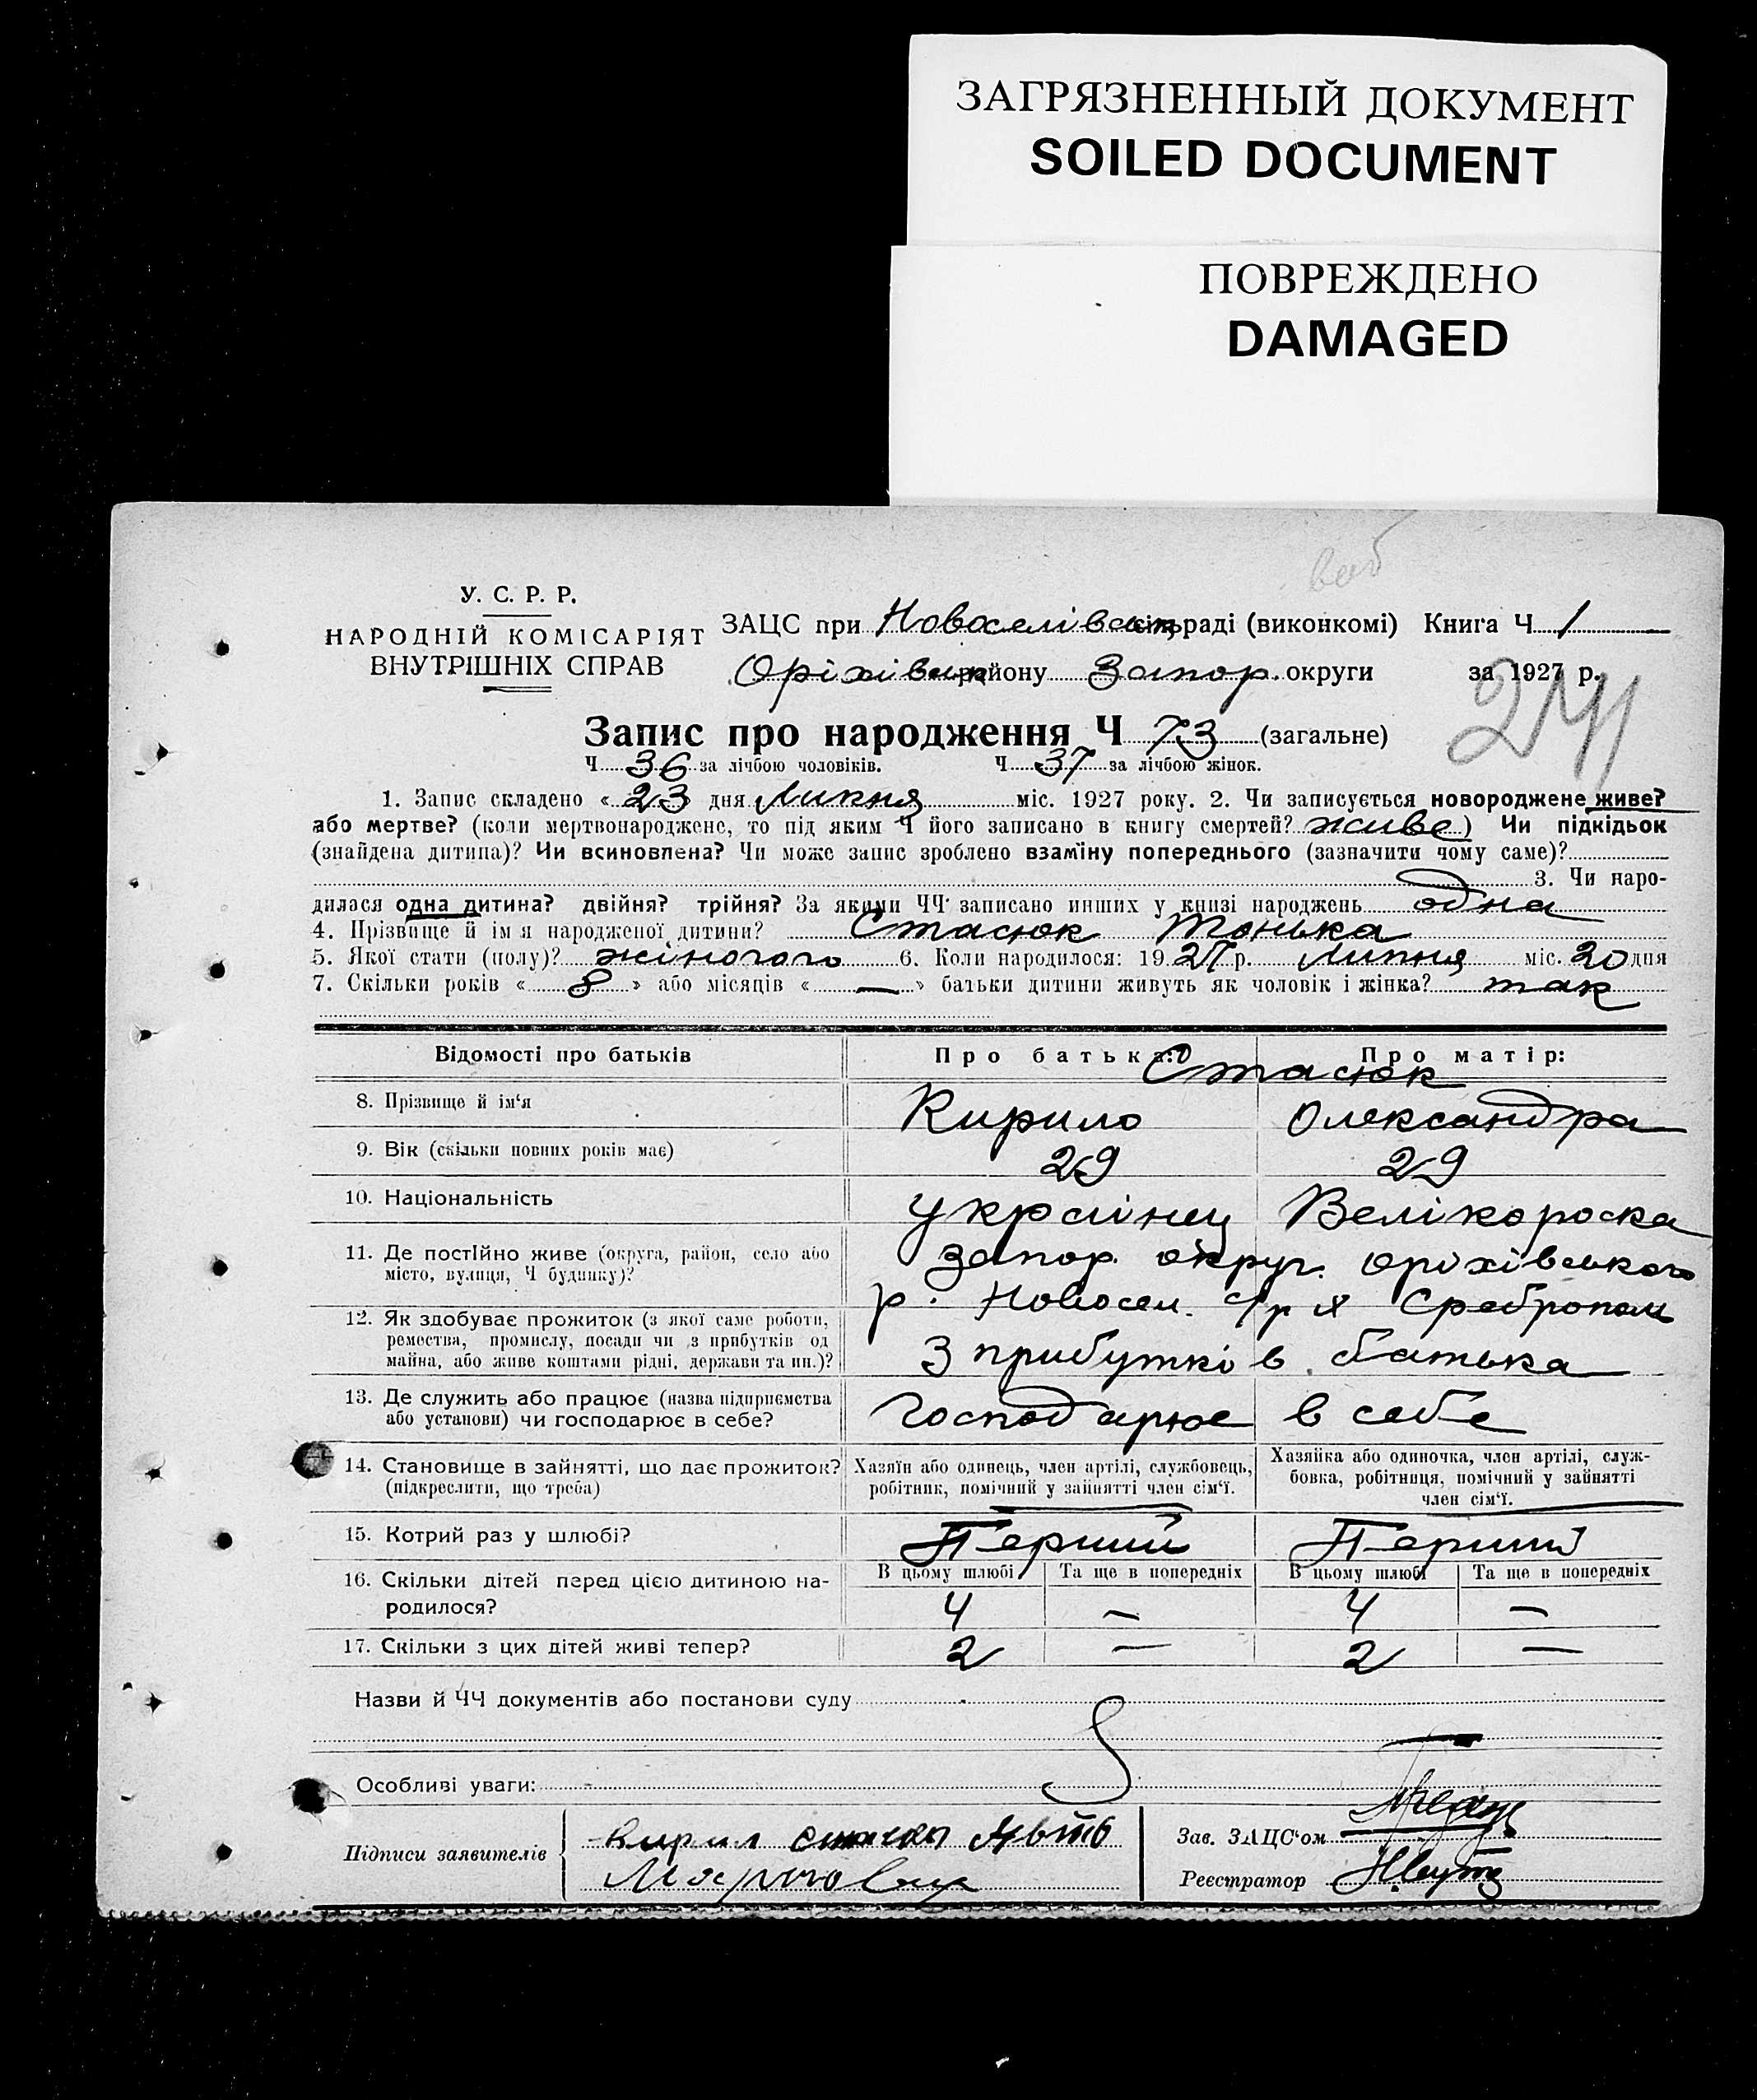 ЗАГРЯЗНЕННЫЙ ДОКУМЕНТ
SOILED DOCUMENT
ПОВРЕЖДЕНО
DAMAGED
У. С. Р. Р.
НАРОДНІЙ КОМІСАРІЯТ
ВНУТРІШНІХ СПРАВ
ЗАЦС при Новоселівськ раді (виконкомі) Книга Ч 1
Оріхівськ району Запор. округи за 1927 р.
241
Запис про народження Ч 73 (загальне)
Ч 36 за лічбою чоловіків. Ч 37 за лічбою жінок.
1. Запис складено « 23 дня Липня міс. 1927 року. 2. Чи записується новороджене живе?
або мертве? (коли мертвонароджене, то під яким Ч його записано в книгу смертей? живе) Чи підкідьок
(знайдена дитина)? Чи всиновлена? Чи може запис зроблено взаміну попереднього (зазначити чому саме)?
3. Чи наро-
дилася одна дитина? двійня? трійня? За якими ЧЧ записано инших у книзі народжень одна
4. Прізвище й ім'я народженої дитини? Стасюк Тонька
5. Якої стати (полу)? жіночого 6. Коли народилося: 19 27 р. Липня міс. 20 дня
7. Скільки років « 8 » або місяців « — » батьки дитини живуть як чоловік і жінка? так
Відомості про батьків Про батька: Про матір:
Стасюк
8. Прізвище й ім'я Кирило Олександра
9. Вік (скільки повних років має) 29 29
10. Національність українец Велікороска
11. Де постійно живе (округа, район, село або Запор. округ. Оріхівського
місто, вулиця, Ч будинку)? р. Новосел. с/р х
12. Як здобуває прожиток (з якої саме роботи,
ремества, промислу, посади чи з прибутків од
майна, або живе коштами рідні, держави та ин.)? З прибутків батька
13. Де служить або працює (назва підприємства
або установи) чи господарює в себе? Господарює в себе
14. Становище в зайнятті, що дає прожиток?
(підкреслити, що треба)
Хазяїн або одинець, член артілі, службовець,
робітник, помічний у зайнятті член сім'ї.
Хазяйка або одиночка, член артілі, служ-
бовка, робітниця, помічний у зайнятті
член сім'ї.
15. Котрий раз у шлюбі? Перший Перший
16. Скільки дітей перед цією дитиною на-
родилося?
В цьому шлюбі Та ще в попередніх В цьому шлюбі Та ще в попередніх
4 — 4 —
17. Скільки з цих дітей живі тепер? 2 — 2 —
Назви й ЧЧ документів або постанови суду
Особливі уваги:
Підписи заявителів Кирил
Зав. ЗАЦС'ом
Реєстратор